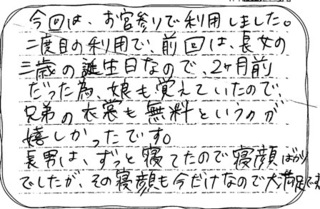 今回は、お宮参りで利用しました。
二度目の利用で、前回は、長女の
三歳の誕生日なので、2ヶ月前
だった為、娘も覚えていたので、
兄弟の衣裳も無料というのが
嬉しかったです。
長男は、ずっと寝てたので寝顔ばかり
でしたが、その寝顔も今だけなので大満足です